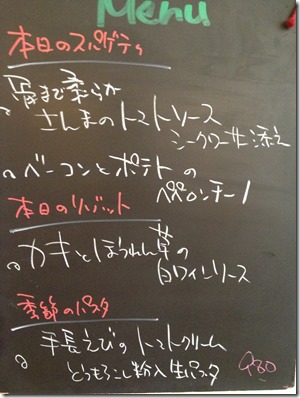 Menu
本日のスパゲティ
骨まで柔らか
さんまのトマトソース
シークワーサー添え
ベーコンとポテトの
ペペロンチーノ
本日のリゾット
カキとほうれん草の
白ワインソース
季節のパスタ
手長えびのトマトクリーム
とうもろこし粉入生パスタ
980